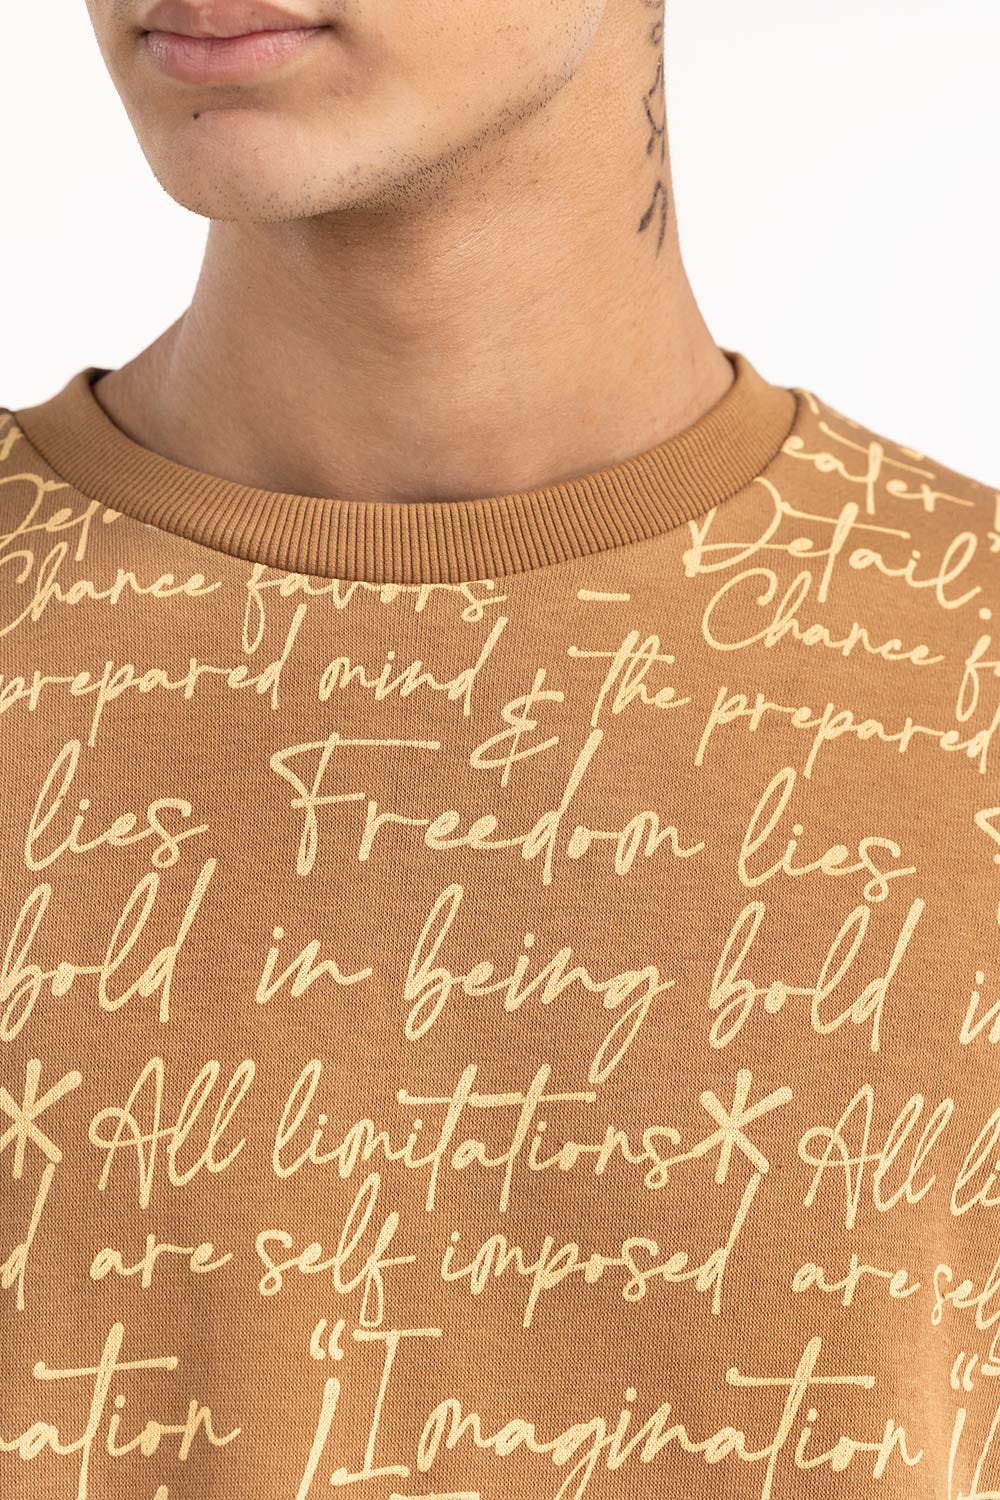 eater
Detail.
Chance favors – Chance
prepared mind & the prepared
lies Freedom lies
bold in being bold
* All limitations * All
are self imposed are
"Imagination